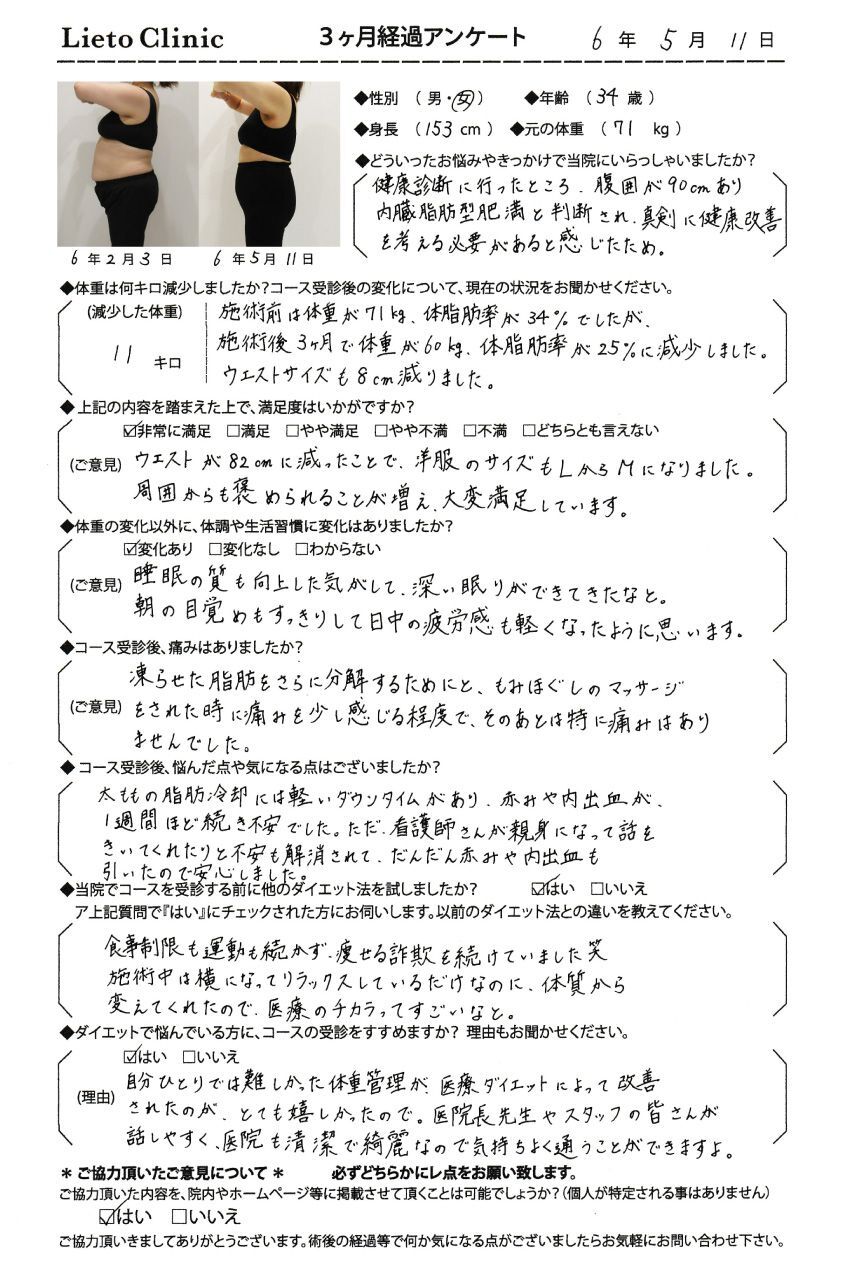 Lieto Clinic　3ヶ月経過アンケート　6 年 5 月 11 日
◆性別 （ 男・女 ）　◆年齢 （ 34 歳 ）
◆身長 （ 153 cm ）　◆元の体重 （ 71 kg ）
◆どういったお悩みやきっかけで当院にいらっしゃいましたか？
健康診断に行ったところ、腹囲が90cmあり
内臓脂肪型肥満と判断され、真剣に健康改善
を考える必要があると感じたため。
6 年 2 月 3 日　6 年 5 月 11 日
◆体重は何キロ減少しましたか？コース受診後の変化について、現在の状況をお聞かせください。
(減少した体重)
11 キロ
施術前は体重が71kg、体脂肪率が34%でしたが、
施術後3ヶ月で体重が60kg、体脂肪率が25%に減少しました。
ウエストサイズも8cm減りました。
◆上記の内容を踏まえた上で、満足度はいかがですか？
☑非常に満足 □満足 □やや満足 □やや不満 □不満 □どちらとも言えない
(ご意見) ウエストが82cmに減ったことで、洋服のサイズもLからMになりました。
周囲からも褒められることが増え、大変満足しています。
◆体重の変化以外に、体調や生活習慣に変化はありましたか？
☑変化あり □変化なし □わからない
(ご意見) 睡眠の質も向上した気がして、深い眠りができてきたなと。
朝の目覚めもすっきりして日中の疲労感も軽くなったように思います。
◆コース受診後、痛みはありましたか？
凍らせた脂肪をさらに分解するためにと、もみほぐしのマッサージ
(ご意見) をされた時に痛みを少し感じる程度で、そのあとは特に痛みはあり
ませんでした。
◆コース受診後、悩んだ点や気になる点はございましたか？
太ももの脂肪冷却には軽いダウンタイムがあり、赤みや内出血が、
1週間ほど続き不安でした。ただ、看護師さんが親身になって話を
きいてくれたりと不安も解消されて、だんだん赤みや内出血も
引いたので安心しました。
◆当院でコースを受診する前に他のダイエット法を試しましたか？　☑はい □いいえ
ア上記質問で『はい』にチェックされた方にお伺いします。以前のダイエット法との違いを教えてください。
食事制限も運動も続かず、痩せる詐欺を続けていました笑
施術中は横になってリラックスしているだけなのに、体質から
変えてくれたので、医療のチカラってすごいなと。
◆ダイエットで悩んでいる方に、コースの受診をすすめますか？ 理由もお聞かせください。
☑はい □いいえ
(理由) 自分ひとりでは難しかった体重管理が、医療ダイエットによって改善
されたのが、とても嬉しかったので。医院長先生やスタッフの皆さんが
話しやすく、医院も清潔で綺麗なので気持ちよく通うことができますよ。
＊ご協力頂いたご意見について＊　必ずどちらかにレ点をお願い致します。
ご協力頂いた内容を、院内やホームページ等に掲載させて頂くことは可能でしょうか？（個人が特定される事はありません）
☑はい □いいえ
ご協力頂きましてありがとうございます。術後の経過等で何か気になる点がございましたらお気軽にお問い合わせ下さい。